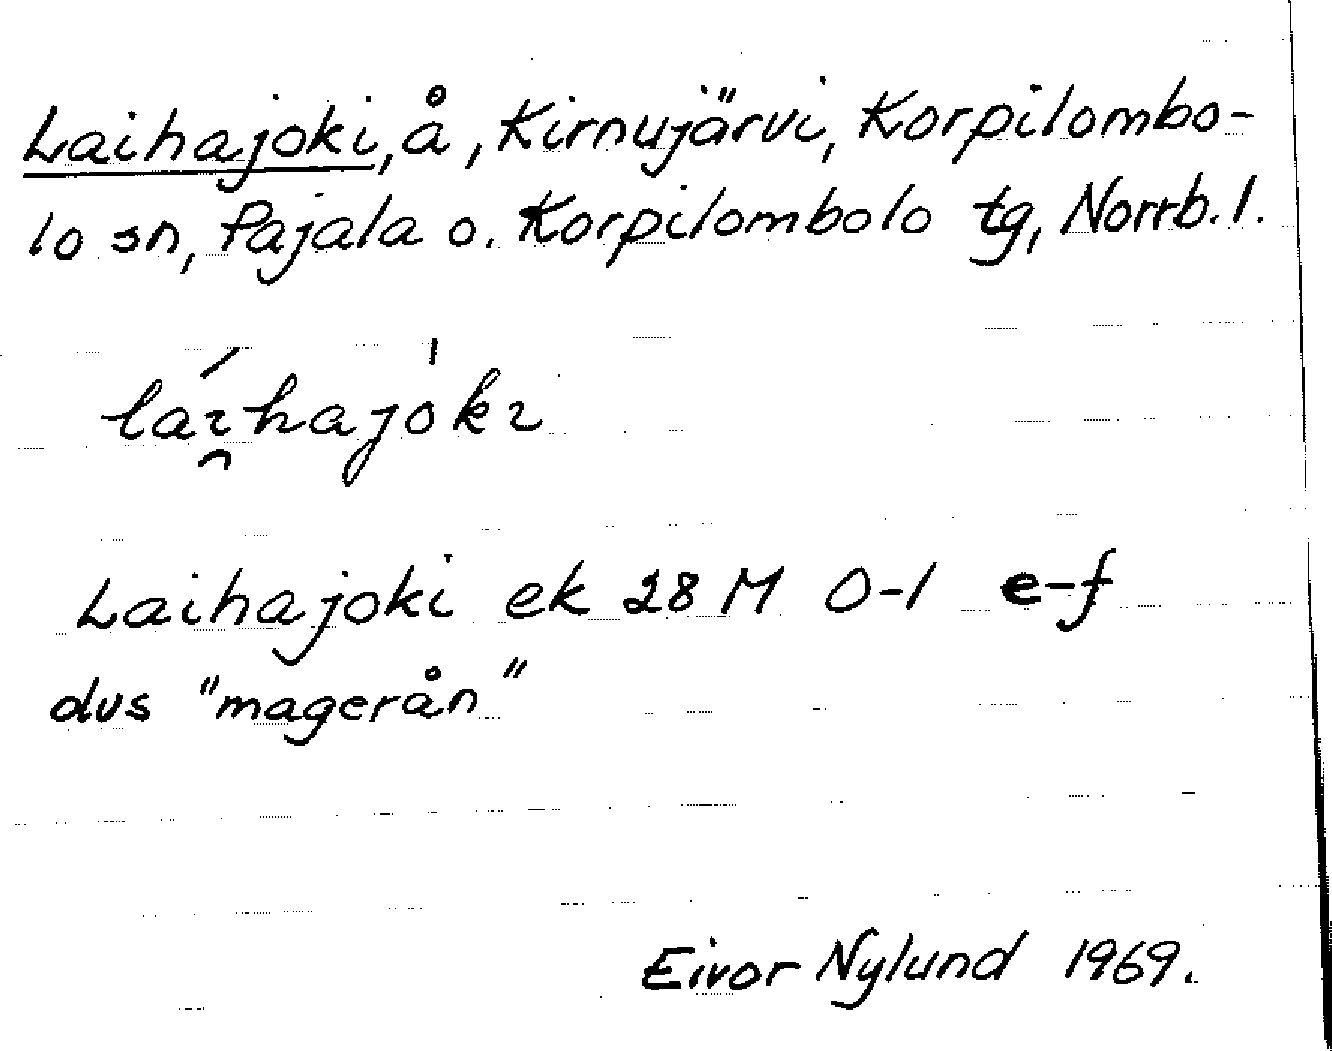 Laihajoki, å, Kirnujärvi, Korpilombo-
lo sn, Pajala o. Korpilombolo tg, Norrb. l.
láı̯hajòkı
Laihajoki ek 28 M 0-1 e-f
dvs "magerån"
Eivor Nylund 1969.